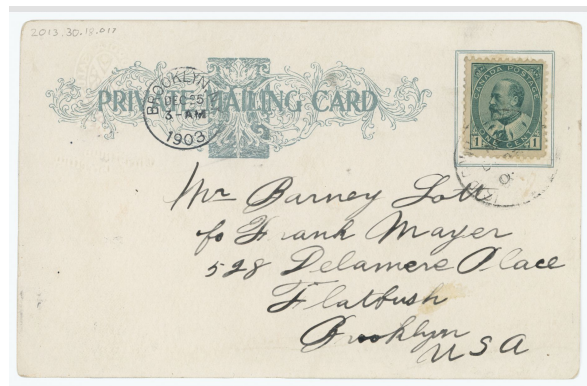 2013.30.18.017
PRIVATE MAILING CARD
BROOKLYN
DEC 5
3-AM
1903
CANADA POSTAGE
1 ONE CENT 1
Mr Barney Lott
c/o Frank Mayer
528 Delamere Place
Flatbush
Brooklyn
USA